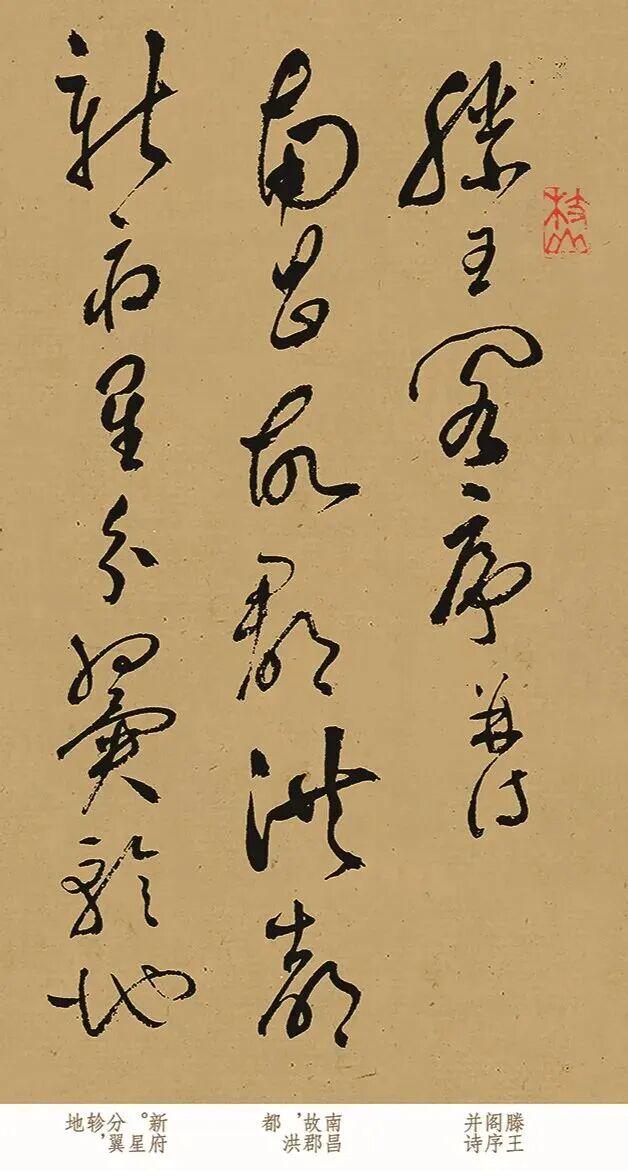 滕王阁序并诗
南昌故郡洪都
新府星分翼轸地
枝山
滕王
阁序
并诗
南昌
故郡
，洪
都
新府
。星
分翼
轸，
地